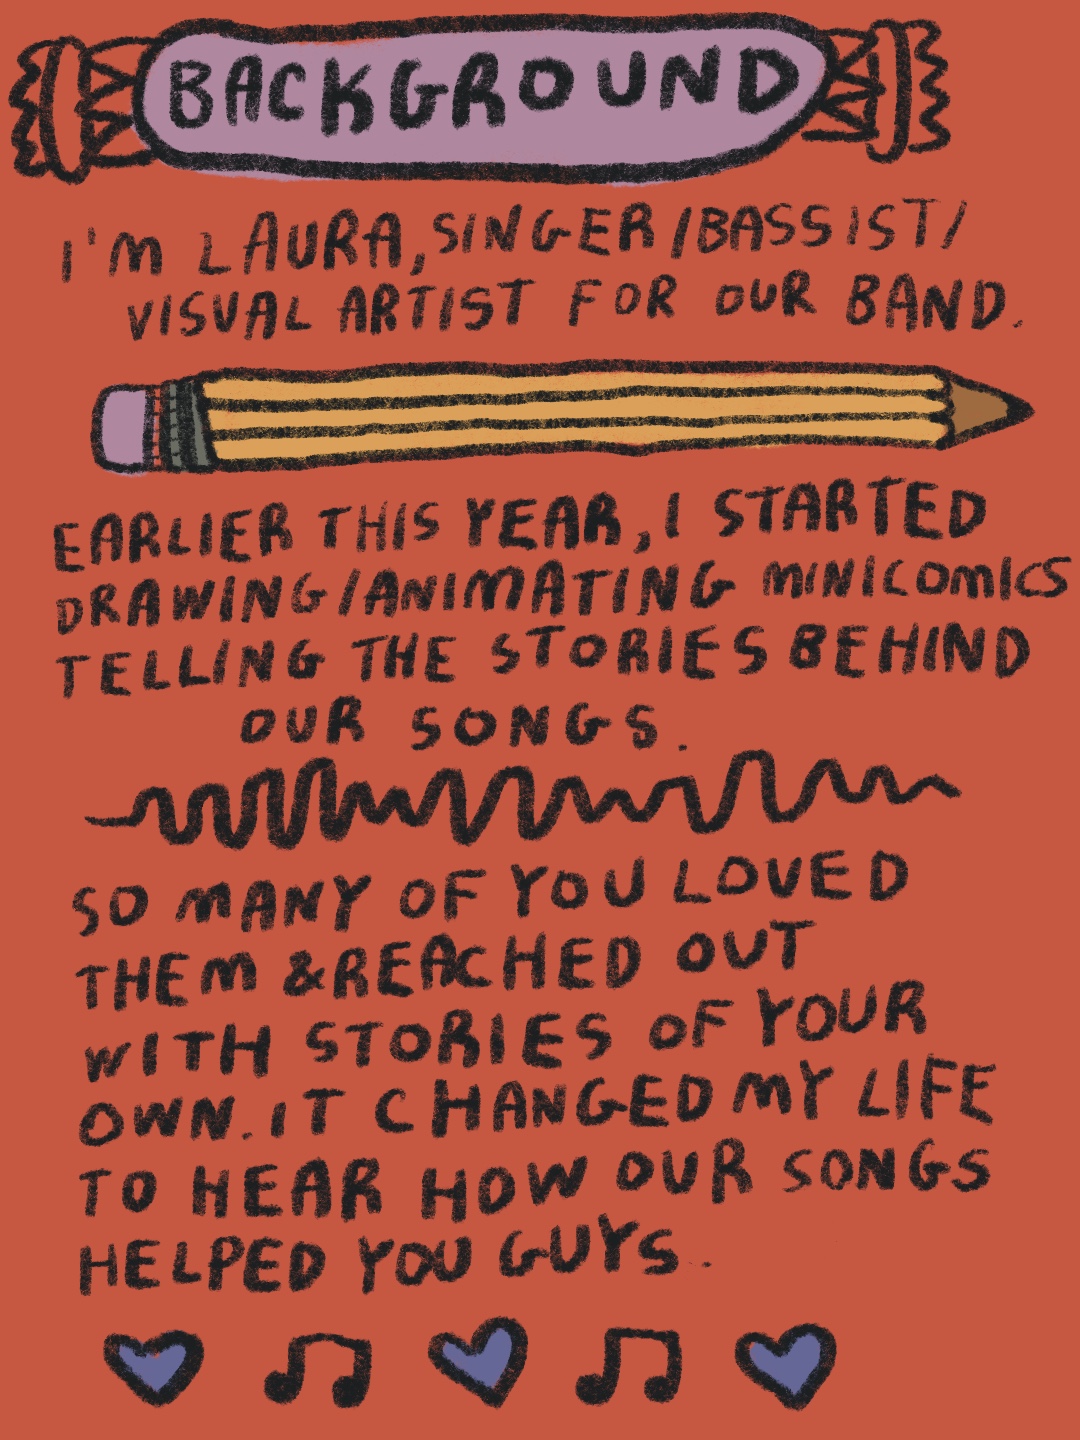 BACKGROUND
I'M LAURA, SINGER/BASSIST/
VISUAL ARTIST FOR OUR BAND.
EARLIER THIS YEAR, I STARTED
DRAWING/ANIMATING MINICOMICS
TELLING THE STORIES BEHIND
OUR SONGS.
SO MANY OF YOU LOVED
THEM & REACHED OUT
WITH STORIES OF YOUR
OWN. IT CHANGED MY LIFE
TO HEAR HOW OUR SONGS
HELPED YOU GUYS.